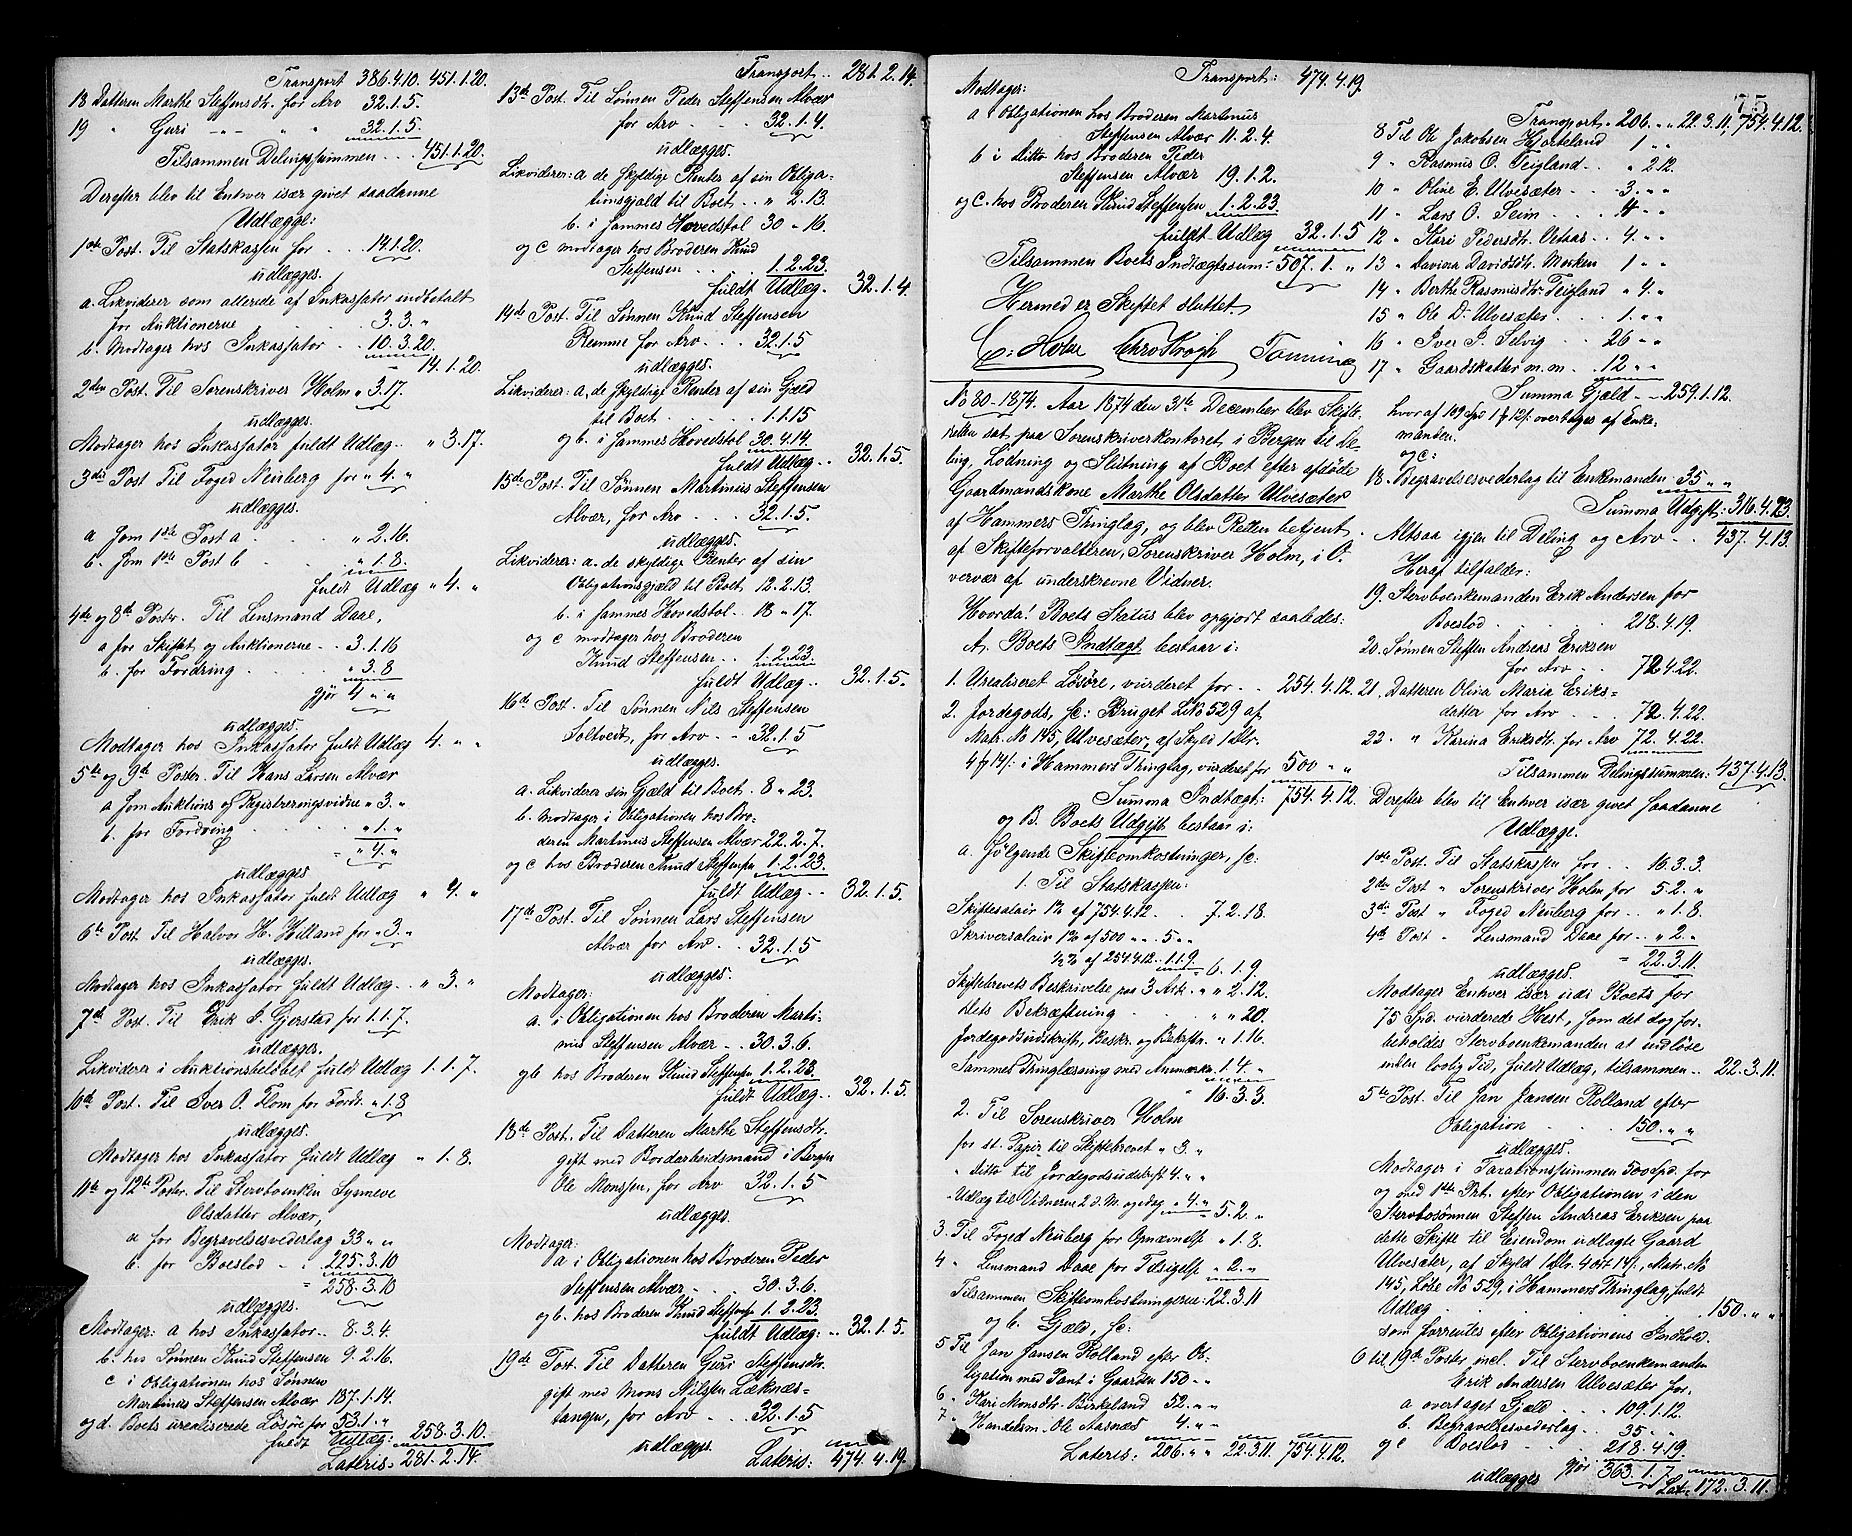 Transport 386.4.10. 451.1.20.
18 Datteren Marthe Steffensdtr. for Arv 32.1.5.
19 " Guri -"- " " 32.1.5
Tilsammen Delingssummen . . . 451.1.20.
Derefter blev til Enhver især givet saadanne
Udlægge:
1ste Post. Til Statskassen for . . 14.1.20.
udlægges.
a. Likviderer som allerede af Inkassator indbetalt
for Auktionerne 3.3. "
b. Modtager hos Inkassator . . 10.3.20.
14.1.20.
2den Post. Til Sorenskriver Holm " 3.17.
udlægges.
Modtager hos Inkassator fuldt Udlæg . . " 3.17.
3die Post Til Foged Neuberg for " 4. "
udlægges.
a som 1ste Post a " 2.16.
b. som 1ste Post b " 1.8.
fuldt Udlæg " 4. "
4de og 8de Poster. Til Lensmand Daae,
a for Skiftet og Auktionerne . . 3.1.16
b. for Fordring " 3.8
gjør 4 " "
udlægges.
Modtager hos Inkassator fuldt Udlæg 4. " "
5te og 9de Poster. Til Hans Larsen Alvær
a som Auktions og Registreringsvidne " 3. "
b. for Fordring " 1. "
" 4. "
udlægges
Modtager hos Inkassator fuldt Udlæg " 4. "
6te Post Til Halvor H. Hilland for " 3. "
udlægges.
Modtager hos Inkassator fuldt Udlæg . . " 3. "
7de Post. Til Erik S. Gjerstad for 1.1.7.
udlægges.
Likviderer i Auktionsbeløbet fuldt Udlæg 1.1.7.
10de Post. Til Iver O. Flom for Fordr. " 1.8
udlægges.
Modtager hos Inkassator fuldt Udlæg " 1.8.
11te og 12te Poster. Til Stervboenken Synneve
Olsdatter Alvær,
a for Begravelsesvederlag 33 " "
b. for Boeslod . . 225.3.10
= 258.3.10
udlægges.
Modtager: a hos Inkassator . . 8.3.4.
b. hos Sønnen Knud Steffensen 9.2.16.
c i Obligationen hos Sønnen
Martinus Steffensen Alvær 187.1.14.
og d. Boets urealiserede Løsøre for 53.1. "
fuldt Udlæg: 258.3.10.
Lateris: 281.2.14.
Transport . . 281.2.14.
13de Post. Til Sønnen Peder Steffensen Alvær
for Arv . . . 32.1.4.
udlægges.
Likviderer: a de skyldige Renter af sin Obliga-
tionsgjæld til Boet . . " 2.13.
b. i sammes Hovedstol 30 " 16.
og c modtager hos Broderen Knud
Steffensen . . . 1.2.23.
fuldt Udlæg . 32.1.4.
14de Post. Til Sønnen Knud Steffensen
Remme for Arv . . 32.1.5
udlægges.
Likviderer: a, de skyldige Renter af sin Gjæld
til Boet . . . 1.1.15
og b. i sammes Hovedstol 30.4.14.
fuldt Udlæg . . 32.1.5.
15de Post. Til Sønnen Martinus Steffensen
Alvær, for Arv . . . 32.1.5.
udlægges.
Likviderer: a. de skyldige Renter af sin
Obligationsgjæld til Boet 12.2.13.
b. i sammes Hovedstol . . 18 " 17.
og c modtager hos Broderen
Knud Steffensen . . 1.2.23.
fuldt Udlæg . . 32.1.5.
16de Post. Til Sønnen Nils Steffensen
Soltvedt, for Arv . . 32.1.5
udlægges.
a. Likviderer sin Gjæld til Boet . 8 " 23.
b. modtager i Obligationen hos Bro-
deren Martinus Steffensen Alvær 22.2.7.
og c hos Broderen Knud Steffensen 1.2.23.
fuldt Udlæg . . 32.1.5.
17de Post. Til Sønnen Lars Steffensen
Alvær for Arv . . 32.1.5
udlægges.
Modtager:
a. i Obligationen hos Broderen Marti-
nus Steffensen Alvær . . 30.3.6.
og b hos Broderen Knud Steffensen 1.2.23.
fuldt Udlæg . . 32.1.5.
18de Post. Til Datteren Marthe Steffensdtr.
gift med Bordarbeidsmand i Bergen
Ole Monssen, for Arv 32.1.5
udlægges.
Modtager:
a i Obligationen hos Broderen Peder
Steffensen Alvær . . 30.3.6.
og b. hos Broderen Knud Steffensen 1.2.23.
fuldt Udlæg: . . 32.1.5.
19de Post. Til Datteren Guri Steffensdtr.
gift med Mons Nilsen Læknæs-
tangen, for Arv . . 32.1.5
udlægges
Lateris: 474.4.19.
Transport: 474.4.19.
Modtager:
a Obligationen hos Broderen Martinus
Steffensen Alvær 11.2.4.
b i Ditto hos Broderen Peder
Steffensen Alvær 19.1.2.
og c. hos Broderen Knud Steffensen 1.2.23.
fuldt Udlæg 32.1.5
Tilsammen Boets Indtægtssum = 507.1. "
Hermed er Skiftet sluttet.
C. Holm Chr. Krogh Tonning
No 80 - 1874. Aar 1874 den 31te December blev Skifte-
retten sat paa Sorenskriverkontoret i Bergen til De-
ling, Lodning og Slutning af Boet efter afdøde
Gaardmandskone Marthe Olsdatter Ulvesæter
af Hammers Thinglag, og blev Retten betjent
af Skifteforvalteren, Sorenskriver Holm, i O-
vervær af underskrevne Vidner.
Hvorda! Boets Status blev opgjort saaledes:
A. Boets Indtægt bestaar i:
1. Urealiseret Løsøre, vurderet for . . 254.4.12.
2. Jordegods, sc: Bruget Lø No 529 af
Matr. No 145, Ulvesæter, af Skyld 1 Dlr.
4 ort 14 s. i Hammers Thinglag, vurderet for 500 " "
Summa Indtægt: 754.4.12.
og B. Boets Udgift bestaar i:
a. Følgende Skifteomkostninger, sc:
1. Til Statskassen:
Skiftesalair 1% af 754.4.12. . . 7.2.18.
Skriversalair 1% af 500 " " . 5 " "
½% af 254.4.12. 1.1.9. 6.1.9.
Skiftebrevets Beskrivelse paa 3 Ark. " " 2.12.
dets Bekræftning " " 20.
Jordegodsudskrift, Beskr. og Bekræftn. " 1.16.
Sammes Thinglæsning med Anmærkn. 1.4. "
" 16.3.3.
2. Til Sorenskriver Holm
for st. Papir til Skiftebrevet " 3. "
" Ditto til Jordegodsudskrift 4. "
" Udlæg til Vidnerne 2 d. M. og idag " 4. " 5.2. "
3. Til Foged Neuberg for Opnævnelse " 1.8.
4 " Lensmand Daae for Tilsigelse " 2. "
Tilsammen Skifteomkostningerne: 22.3.11
og b. Gjæld, sc:
5 Til Jan Jansen Rolland efter Ob-
ligation med Pant i Gaarden 150 " "
6. " Kari Monsdtr. Birkeland 52. " "
7 " Handelsm. Ole Aasnæs 4. " "
Lateris: 206. " " 22.3.11. 754.4.12.
75
Transport " 206. " " 22.3.11. 754.4.12.
8 Til Ole Jakobsen Hjorteland 1 " "
9 " Rasmus O. Teigland . . " 2.12.
10 " Oline E. Ulvesæter . . 3. " "
11 " Lars O. Seim . . . 4 " "
12 " Kari Pedersdtr. Vetaas . . 4. " "
13 " Davina Davidsdtr. Morken 1 " "
14 " Berthe Rasmusdtr. Teigland " 4. "
15 " Ole D. Ulvesæter . . 1. " "
16 " Iver P. Selvig . . 26 " "
17 " Gaardskatter m.m. . . 12 " "
Summa Gjæld . . 259.1.12.
hvor af 109 Spd 1 ort 12 s. overtages af Enke-
manden.
og c:
18. Begravelsesvederlag til Enkemanden 35 " "
Summa Udgift: 316.4.23.
Altsaa igjen til Deling og Arv . . 437.4.13.
Heraf tilfalder:
19. Stervboenkemanden Erik Andersen for
Boeslod . . . . 218.4.19.
20. Sønnen Steffen Andreas Eriksen
for Arv . . 72.4.22.
21. Datteren Olina Maria Eriks-
datter for Arv . . . 72.4.22.
22. " Karina Eriksdtr. for Arv 72.4.22.
Tilsammen Delingssummen: 437.4.13.
Derefter blev til Enhver især givet saadanne
Udlægge.
1ste Post. Til Statskassen for . . 16.3.3.
2den Post " Sorenskriver Holm for 5.2. "
3die Post " Foged Neuberg for . . " 1.8.
4de Post " Lensmand Daae for . . " 2. "
= 22.3.11.
udlægges.
Modtager Enhver især udi Boets for
75 Spd. vurderede Hest, som det dog for-
beholdes Stervboenkemanden at indløse
inden lovlig Tid, fuldt Udlæg, tilsammen . . 22.3.11.
5te Post. Til Jan Jansen Rolland efter
Obligation . . . 150. " "
udlægges.
Modtager i Taxationssummen 500 Spd. for
og med 1ste Prt. efter Obligationen, i den
Stervbosønnen Steffen Andreas Eriksen paa
dette Skifte til Eiendom udlagte Gaard
Ulvesæter, af Skyld 1 Dlr. 4 ort 14 s., Matr. No
145, Løbe No 529, i Hammers Thinglag, fuldt
Udlæg . . . 150. " "
som forrentes efter Obligationens Indhold.
6 til 19de Poster incl. Til Stervboenkemanden
Erik Andersen Ulvesæter for,
a overtaget Gjæld . . . 109.1.12.
b. Begravelsesvederlag . 35 " "
og c Boeslod . . 218.4.19.
gjør 363.1.7.
udlægges
Lat: 172.3.11.